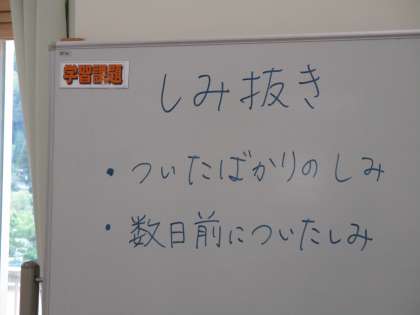 学習課題
しみ抜き
・ついたばかりのしみ
・数日前についたしみ